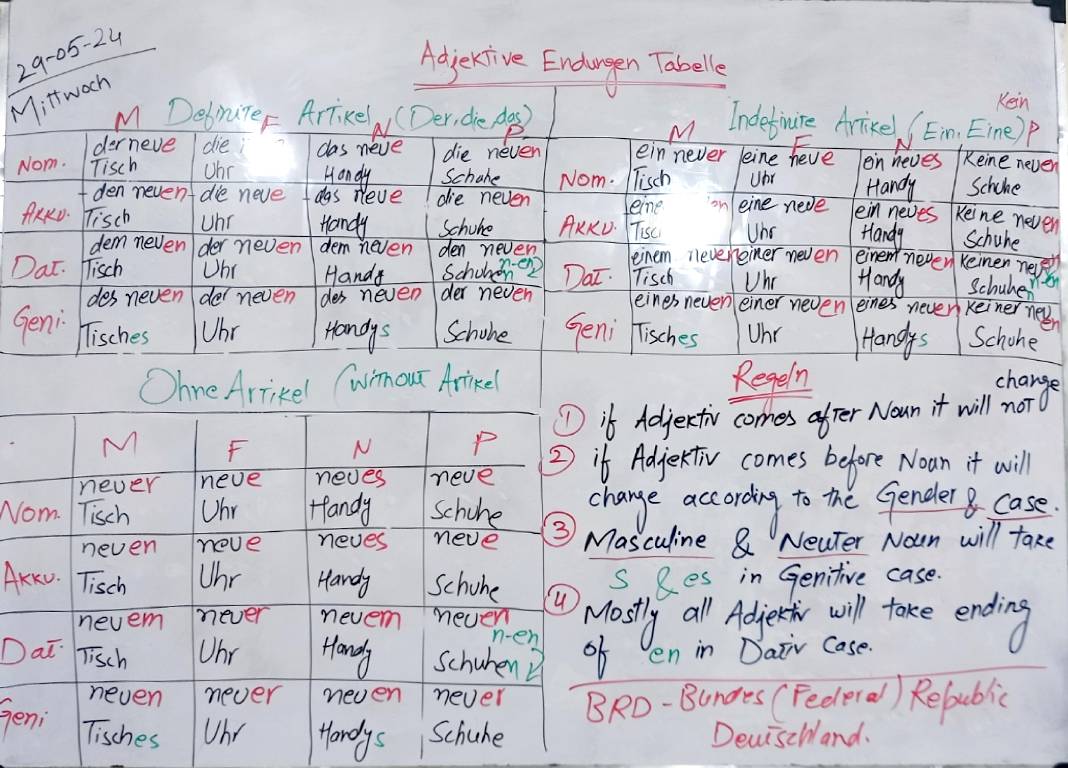 29-05-24
Mittwoch
Adjektive Endungen Tabelle
Definite Artikel (Der, die, das)
M F N P
Nom. der neue die das neue die neuen
Tisch Uhr Handy Schuhe
Akku. den neuen die neue das neue die neuen
Tisch Uhr Handy Schuhe
Dat. dem neuen der neuen dem neuen den neuen
Tisch Uhr Handy Schuhen n-en
Geni. des neuen der neuen des neuen der neuen
Tisches Uhr Handys Schuhe
Kein
Indefinite Artikel (Ein, Eine)
M F N P
Nom. ein neuer eine neue ein neues Keine neuen
Tisch Uhr Handy Schuhe
Akku. eine neue ein neues Keine neuen
Uhr Handy Schuhe
Dat. einem neuen einer neuen einem neuen Keinen neuen
Tisch Uhr Handy Schuhen n-en
Geni eines neuen einer neuen eines neuen Keiner neuen
Tisches Uhr Handys Schuhe
Ohne Artikel (without Artikel
M F N P
Nom. neuer neue neues neue
Tisch Uhr Handy Schuhe
Akku. neuen neue neues neue
Tisch Uhr Handy Schuhe
Dat. neuem neuer neuem neuen
n-en
Tisch Uhr Handy Schuhen
Geni neuen neuer neuen neuer
Tisches Uhr Handys Schuhe
Regeln
change
① if Adjektiv comes after Noun it will not
② if Adjektiv comes before Noun it will
change according to the Gender & Case.
③ Masculine & Neuter Noun will take
S & es in Genitive case.
④ Mostly all Adjektiv will take ending
of en in Dativ Case.
BRD - Bundes (Federal) Republic
Deutschland.